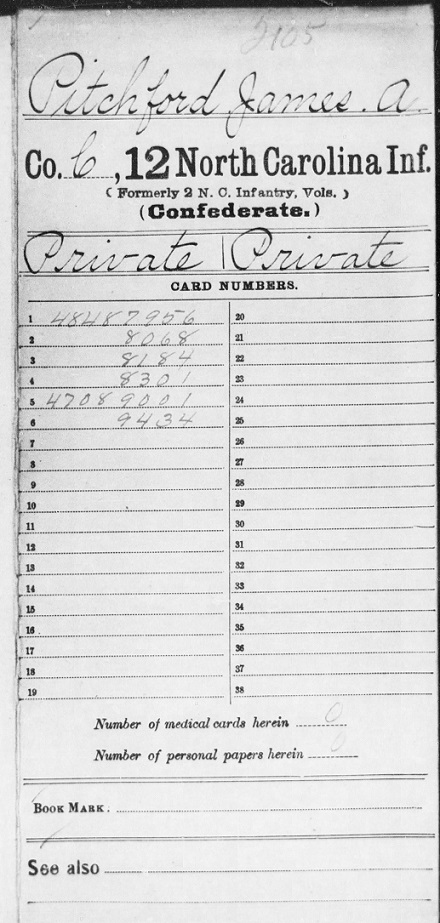 2105
Pitchford James. A
Co. C, 12 North Carolina Inf.
( Formerly 2 N. C. Infantry, Vols. )
(Confederate.)
Private | Private
CARD NUMBERS.
1 48487956 20
2 8068 21
3 8184 22
4 8301 23
5 47089001 24
6 9434 25
7 26
8 27
9 28
10 29
11 30
12 31
13 32
14 33
15 34
16 35
17 36
18 37
19 38
Number of medical cards herein 0
Number of personal papers herein 0
BOOK MARK.
See also